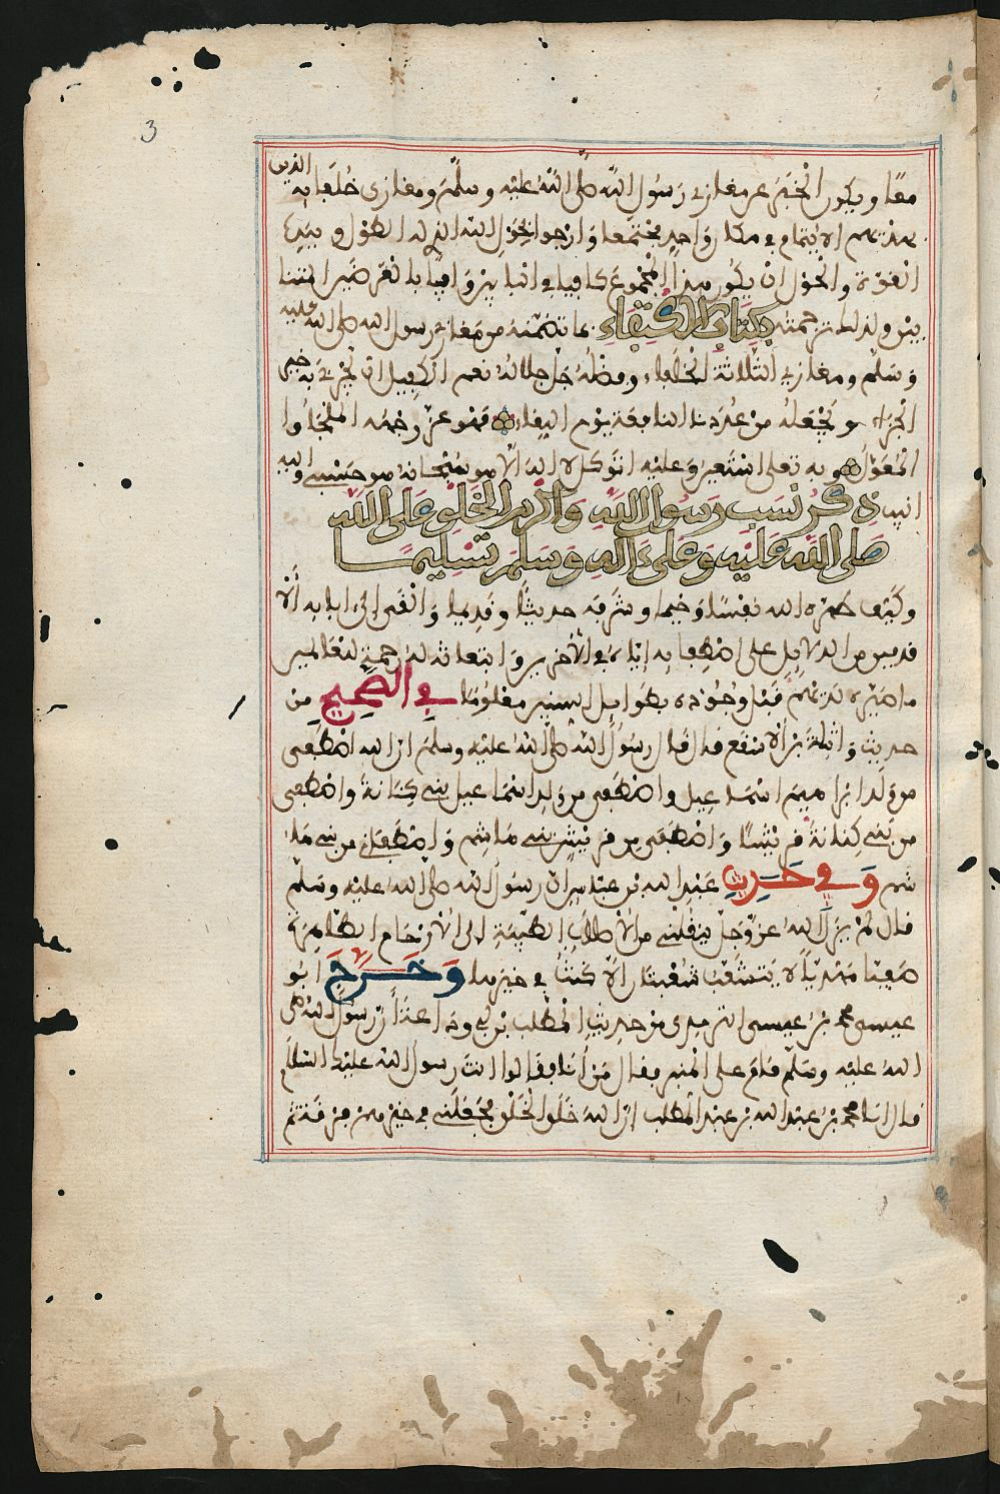 3
معا ويكون الخبر عن مغازي رسول الله صلى الله عليه وسلم ومغازي خلفائه الذين
الائتمام في مكان واحد مجتمعا وارجوا بحول الله الذي له الطول وبيده
القوة والحول ان يكون هذا المجموع كافيا في انبائه وافيا بالغرض
ولذلك ترجمته بكتاب الاكتفاء بما تضمنه من مغازي رسول الله صلى الله عليه
وسلم ومغازي الثلاثة الخلفاء وفضله جل جلاله نعم الكفيل ان يجزي به خير
الجزاء ويجعله من عددنا النافعة يوم اللقاء فهو عز وجهه الملجأ والمعول
وبه تعلى استعين وعليه اتوكل لا اله الا هو سبحانه هو حسبي واليه
انيب ذكر نسب رسول الله واكرم الخلق على الله
صلى الله عليه وعلى ءاله وسلم تسليما
وكيف طهره الله نفسا وخيما وشرفه حديثا وقديما والقى الى ابايه الا
قدمين من الدلايل على اصطفايه اياه في الاخرين وابتعاثه له رحمة للعالمين
ما صيره لديهم قبل وجوده بطوايل السنين معلوما في الصحيح من
حديث واثلة بن الاسقع قال قال رسول الله صلى الله عليه وسلم ان الله اصطفى
من ولد ابراهيم اسماعيل واصطفى من ولد اسماعيل بني كنانة واصطفى
من بني كنانة قريشا واصطفى من قريش بني هاشم واصطفاني من بني ها
شم وفي حديث عبد الله بن عباس ان رسول الله صلى الله عليه وسلم
قال لم يزل الله عز وجل ينقلني من الاصلاب الطيبة الى الارحام الطاهرة
صفيا مهديا لا يتشعب شعبتان الا كنت في خيرهما وخرج ابو
عيسى محمد بن عيسى الترمذي من حديث المطلب بن ابي وداعة ان رسول الله صلى
الله عليه وسلم قام على المنبر فقال من انا فقالوا انت رسول الله عليك السلام
قال انا محمد بن عبد الله بن عبد المطلب ان الله خلق الخلق فجعلني في خيرهم من فرقتهم